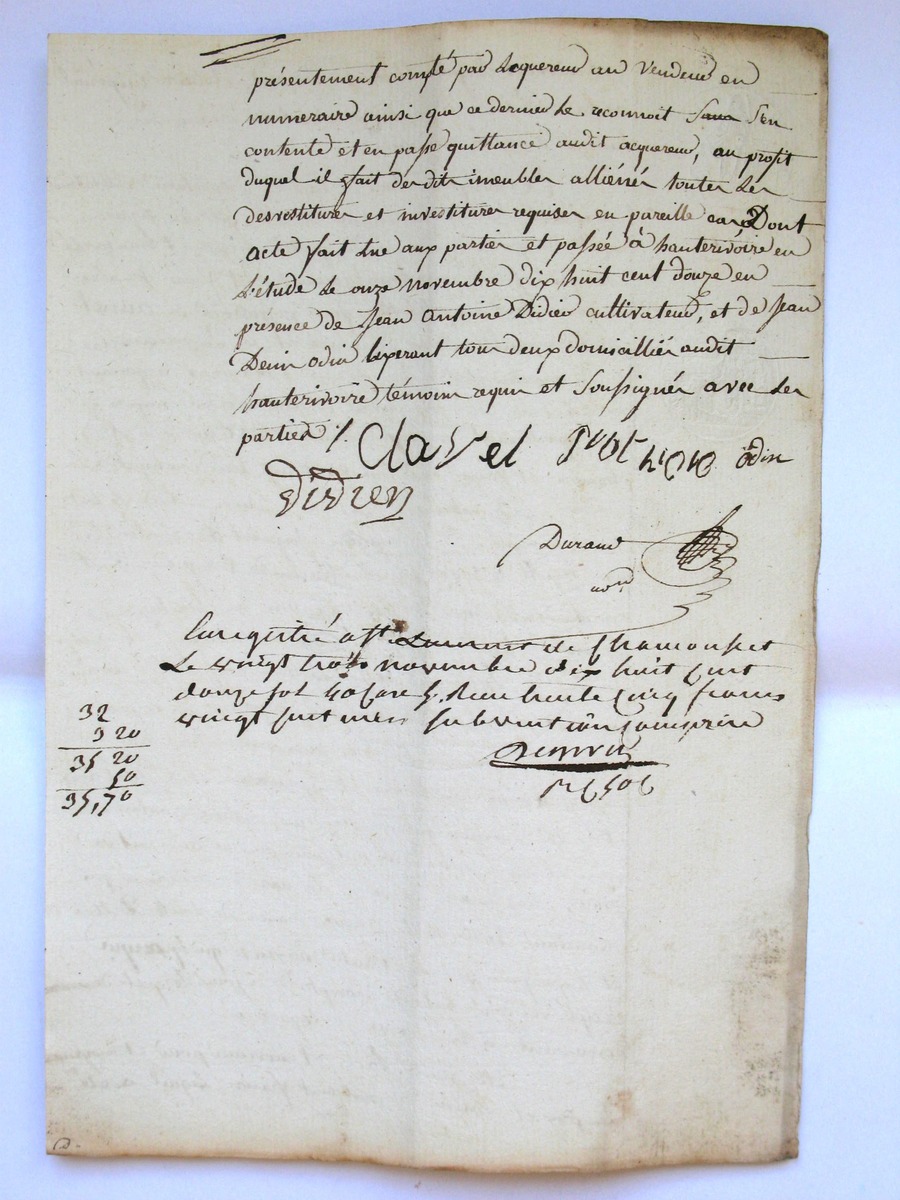 présentement compté par Lacquereur au Vendeur en
numeraire ainsi que ce dernier le reconnoit S'en
contente et en passe quittance audit acquereur, au profit
duquel il fait desdits imeubles alliénés toutes les
desvestitures et investitures requises en pareille cas Dont
acte fait lue aux parties et passée à hauterivoire en
L'étude le onze novembre dix huit cent douze en
présence de Jean Antoine Didier cultivateur, et de Jean
Denis odin tixerant tous deux domicilliés audit
hauterivoire témoins requis et Soussignés avec les
parties /.
Clavel odin
didier
Durand
not
Enregistré a st Laurent de Chamousset
Le vingt trois novembre dix huit cent
douze fol 40 Reçu trente cinq francs
vingt centimes subvention comprise
32
3 20
35 20
50
35,70